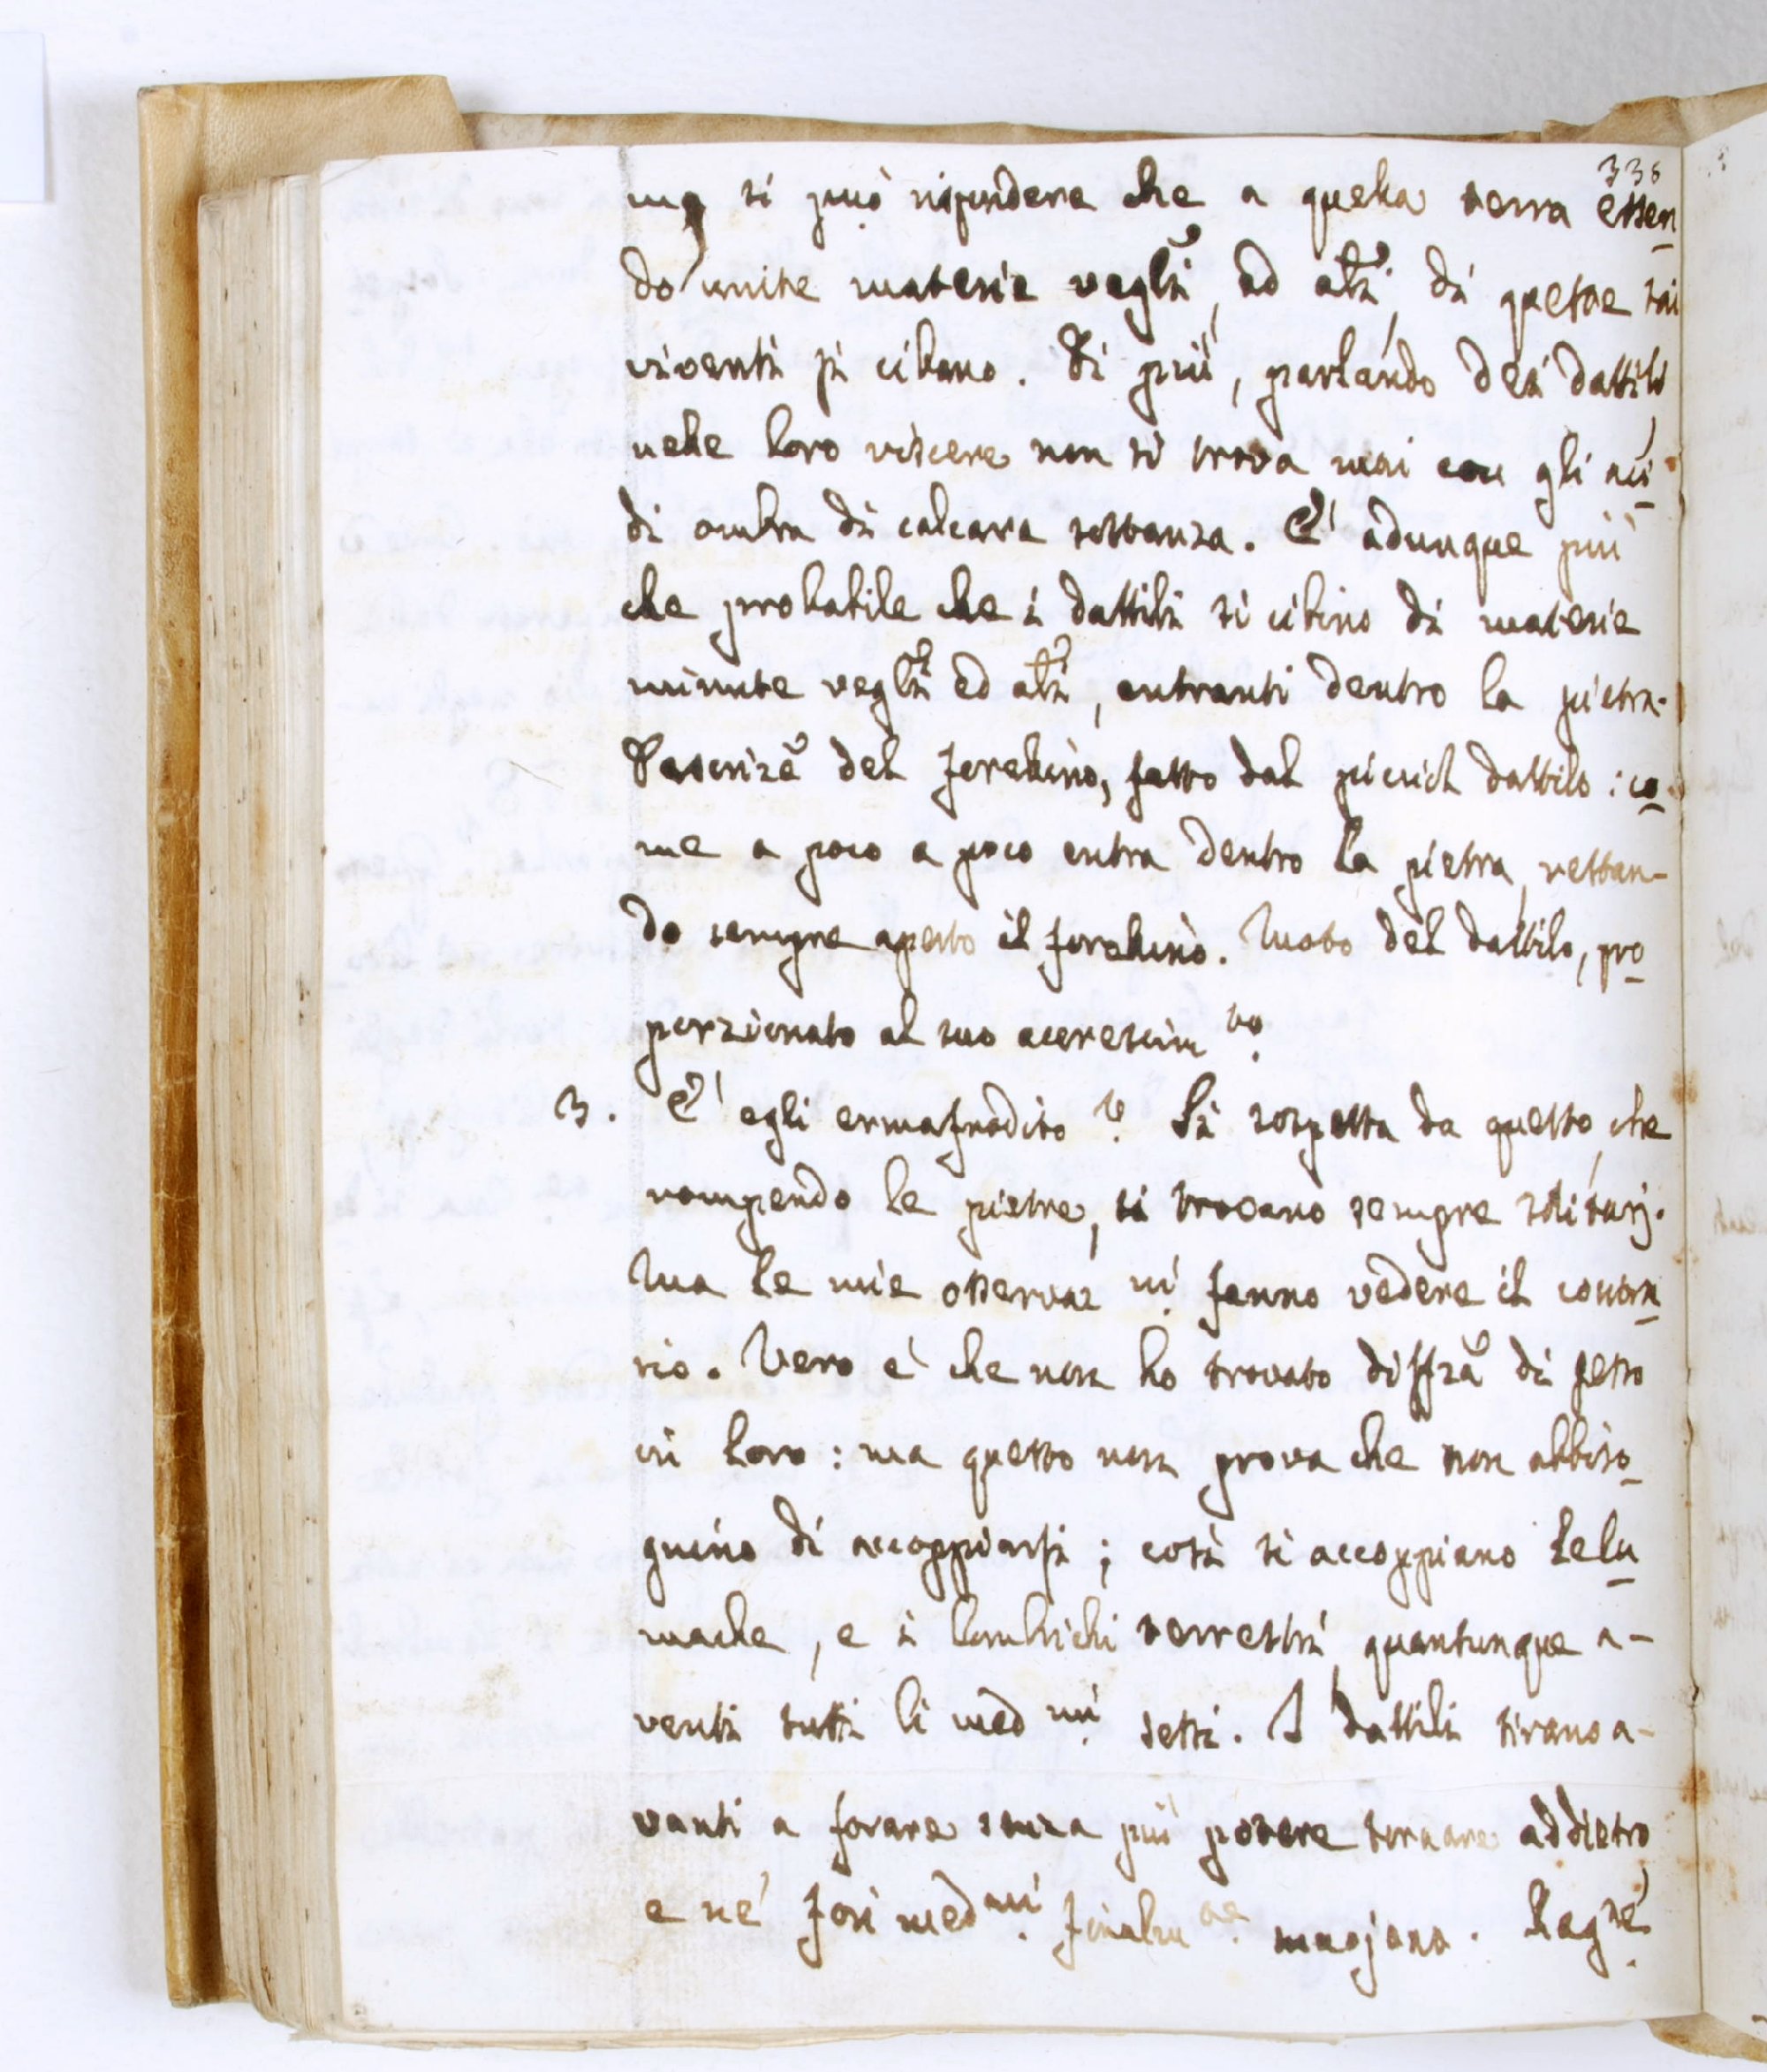 338
ma si può rispondere che a quella terra essen
do unite materie vegli, ed ali, di queste tai
viventi si cibano. Di più, parlando dei dattili
nelle loro viscere non si trova mai con gli aci
di ombra di calcara sostanza. È adunque più
che probabile che i dattili si cibino di materie
minute vegli ed ali, entranti dentro la pietra.
Descrize del forellino, fatto dal picciol dattilo: co
me a poco a poco entra dentro la pietra, restan-
do sempre aperto il forellino. Moto del dattilo, pro
porzionato al suo accrescimto.
3. È egli ermafrodito? Si sospetta da questo, che
rompendo le pietre, si trovano sempre solitarj.
Ma le mie osservazni fanno vedere il contra
rio. Vero è che non ho trovato diffza di sesso
in loro: ma questo non prova che non abbiso
gnino di accoppiarsi; così si accoppiano le lu
mache, e i lombrichi terrestri, quantunque a-
venti tutti li medmi sessi. I dattili tirano a-
vanti a forare senza più potere tornare addietro
e ne' fori medmi muojono. Ragne